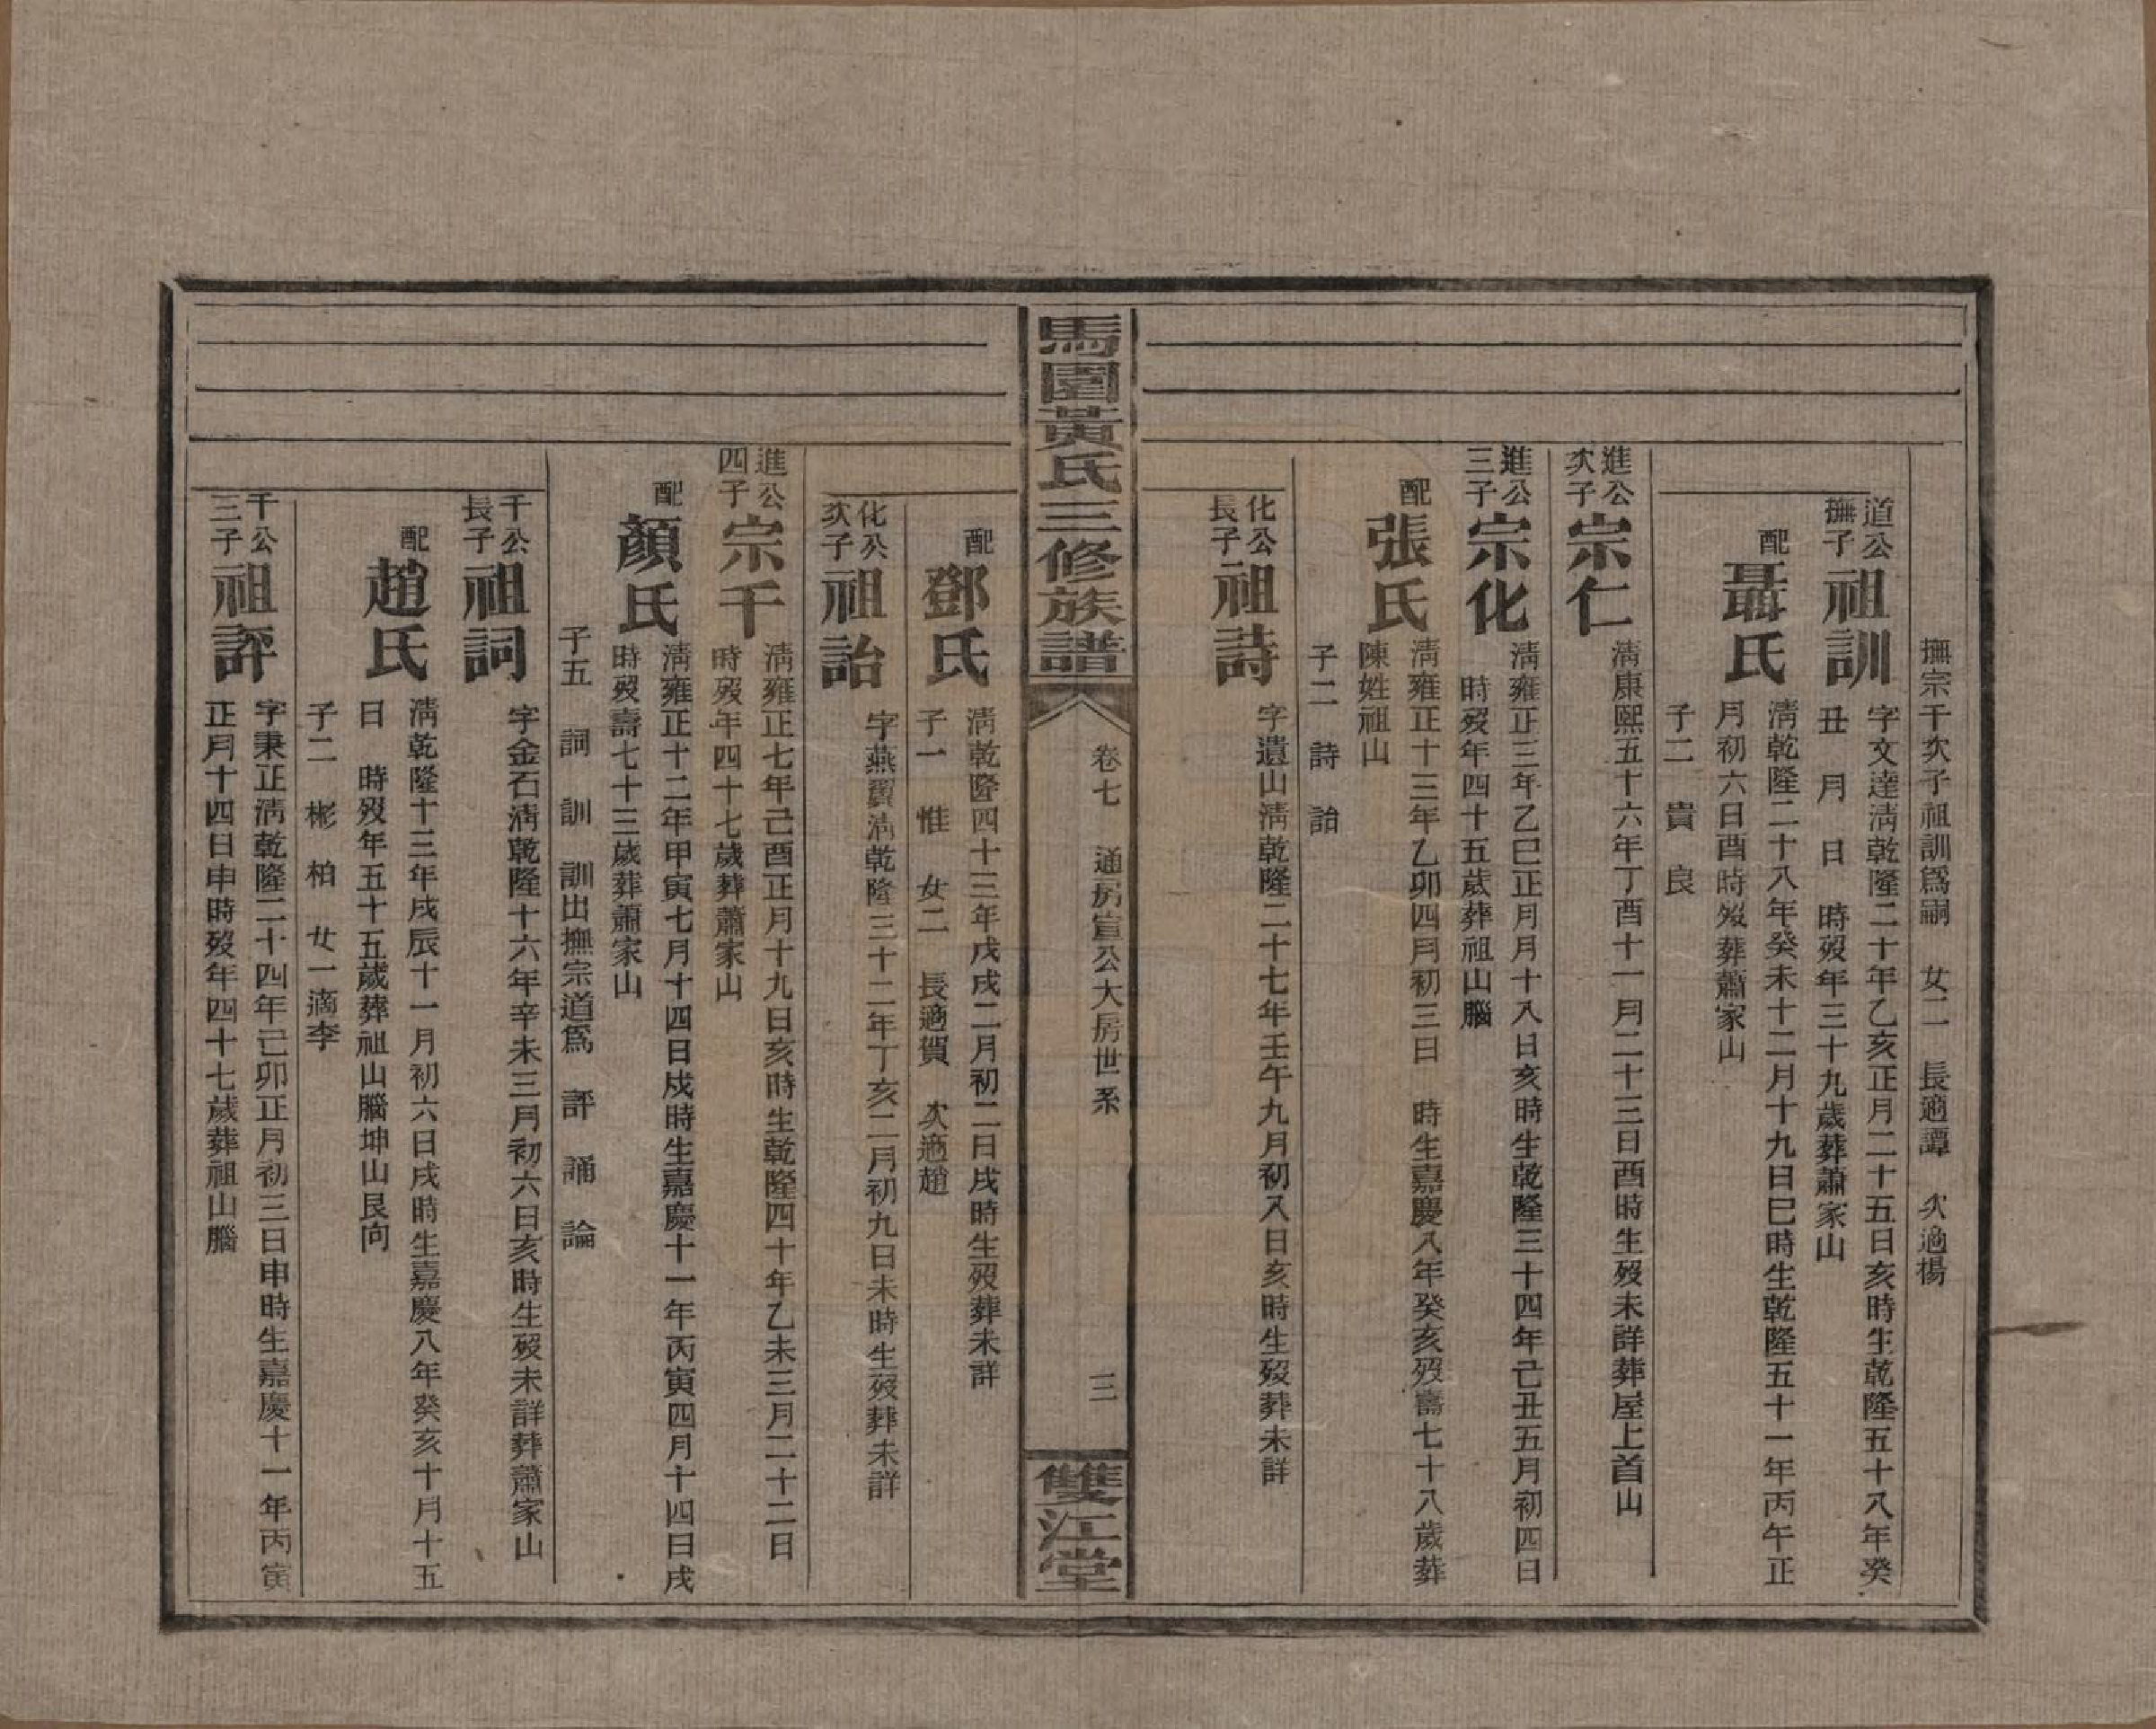 撫宗干次子祖訓爲嗣　女二　長適譚　次適楊
道公
撫子
祖訓
字文達淸乾隆二十年乙亥正月二十五日亥時生乾隆五十八年癸
丑　月　日　時歿年三十九歲葬蕭家山
配
聶氏
淸乾隆二十八年癸未十二月十九日巳時生乾隆五十一年丙午正
月初六日酉時歿葬蕭家山
子二　貴　良
進公
次子
宗仁
淸康熙五十六年丁酉十一月二十三日酉時生歿未詳葬屋上首山
進公
三子
宗化
淸雍正三年乙巳正月月十八日亥時生乾隆三十四年己丑五月初四日
時歿年四十五歲葬祖山腦
配
張氏
淸雍正十三年乙卯四月初三日　時生嘉慶八年癸亥歿壽七十八歲葬
陳姓祖山
子二　詩　詒
化公
長子
祖詩
字遺山淸乾隆二十七年壬午九月初入日亥時生歿葬未詳
馬園黃氏三修族譜
卷七　通房宣公大房世系
三
雙江堂
配
鄧氏
淸乾隆四十三年戊戌二月初二日戌時生歿葬未詳
子一　惟　女二　長適賀　次適趙
化公
次子
祖詒
字燕翼淸乾隆三十二年丁亥二月初九日未時生歿葬未詳
進公
四子
宗干
淸雍正七年己酉正月十九日亥時生乾隆四十年乙未三月二十二日
時歿年四十七歲葬蕭家山
配
顏氏
淸雍正十二年甲寅七月十四日戌時生嘉慶十一年丙寅四月十四日戌
時歿壽七十三歲葬蕭家山
子五　詞　訓　訓出撫宗道爲　評　誦　論
干公
長子
祖詞
字金石淸乾隆十六年辛未三月初六日亥時生歿未詳葬蕭家山
配
趙氏
淸乾隆十三年戊辰十一月初六日戌時生嘉慶八年癸亥十月十五
日　時歿年五十五歲葬祖山腦坤山艮向
子二　彬　柏　女一適李
干公
三子
祖評
字秉正淸乾隆二十四年己卯正月初三日申時生嘉慶十一年丙寅
正月十四日申時歿年四十七歲葬祖山腦